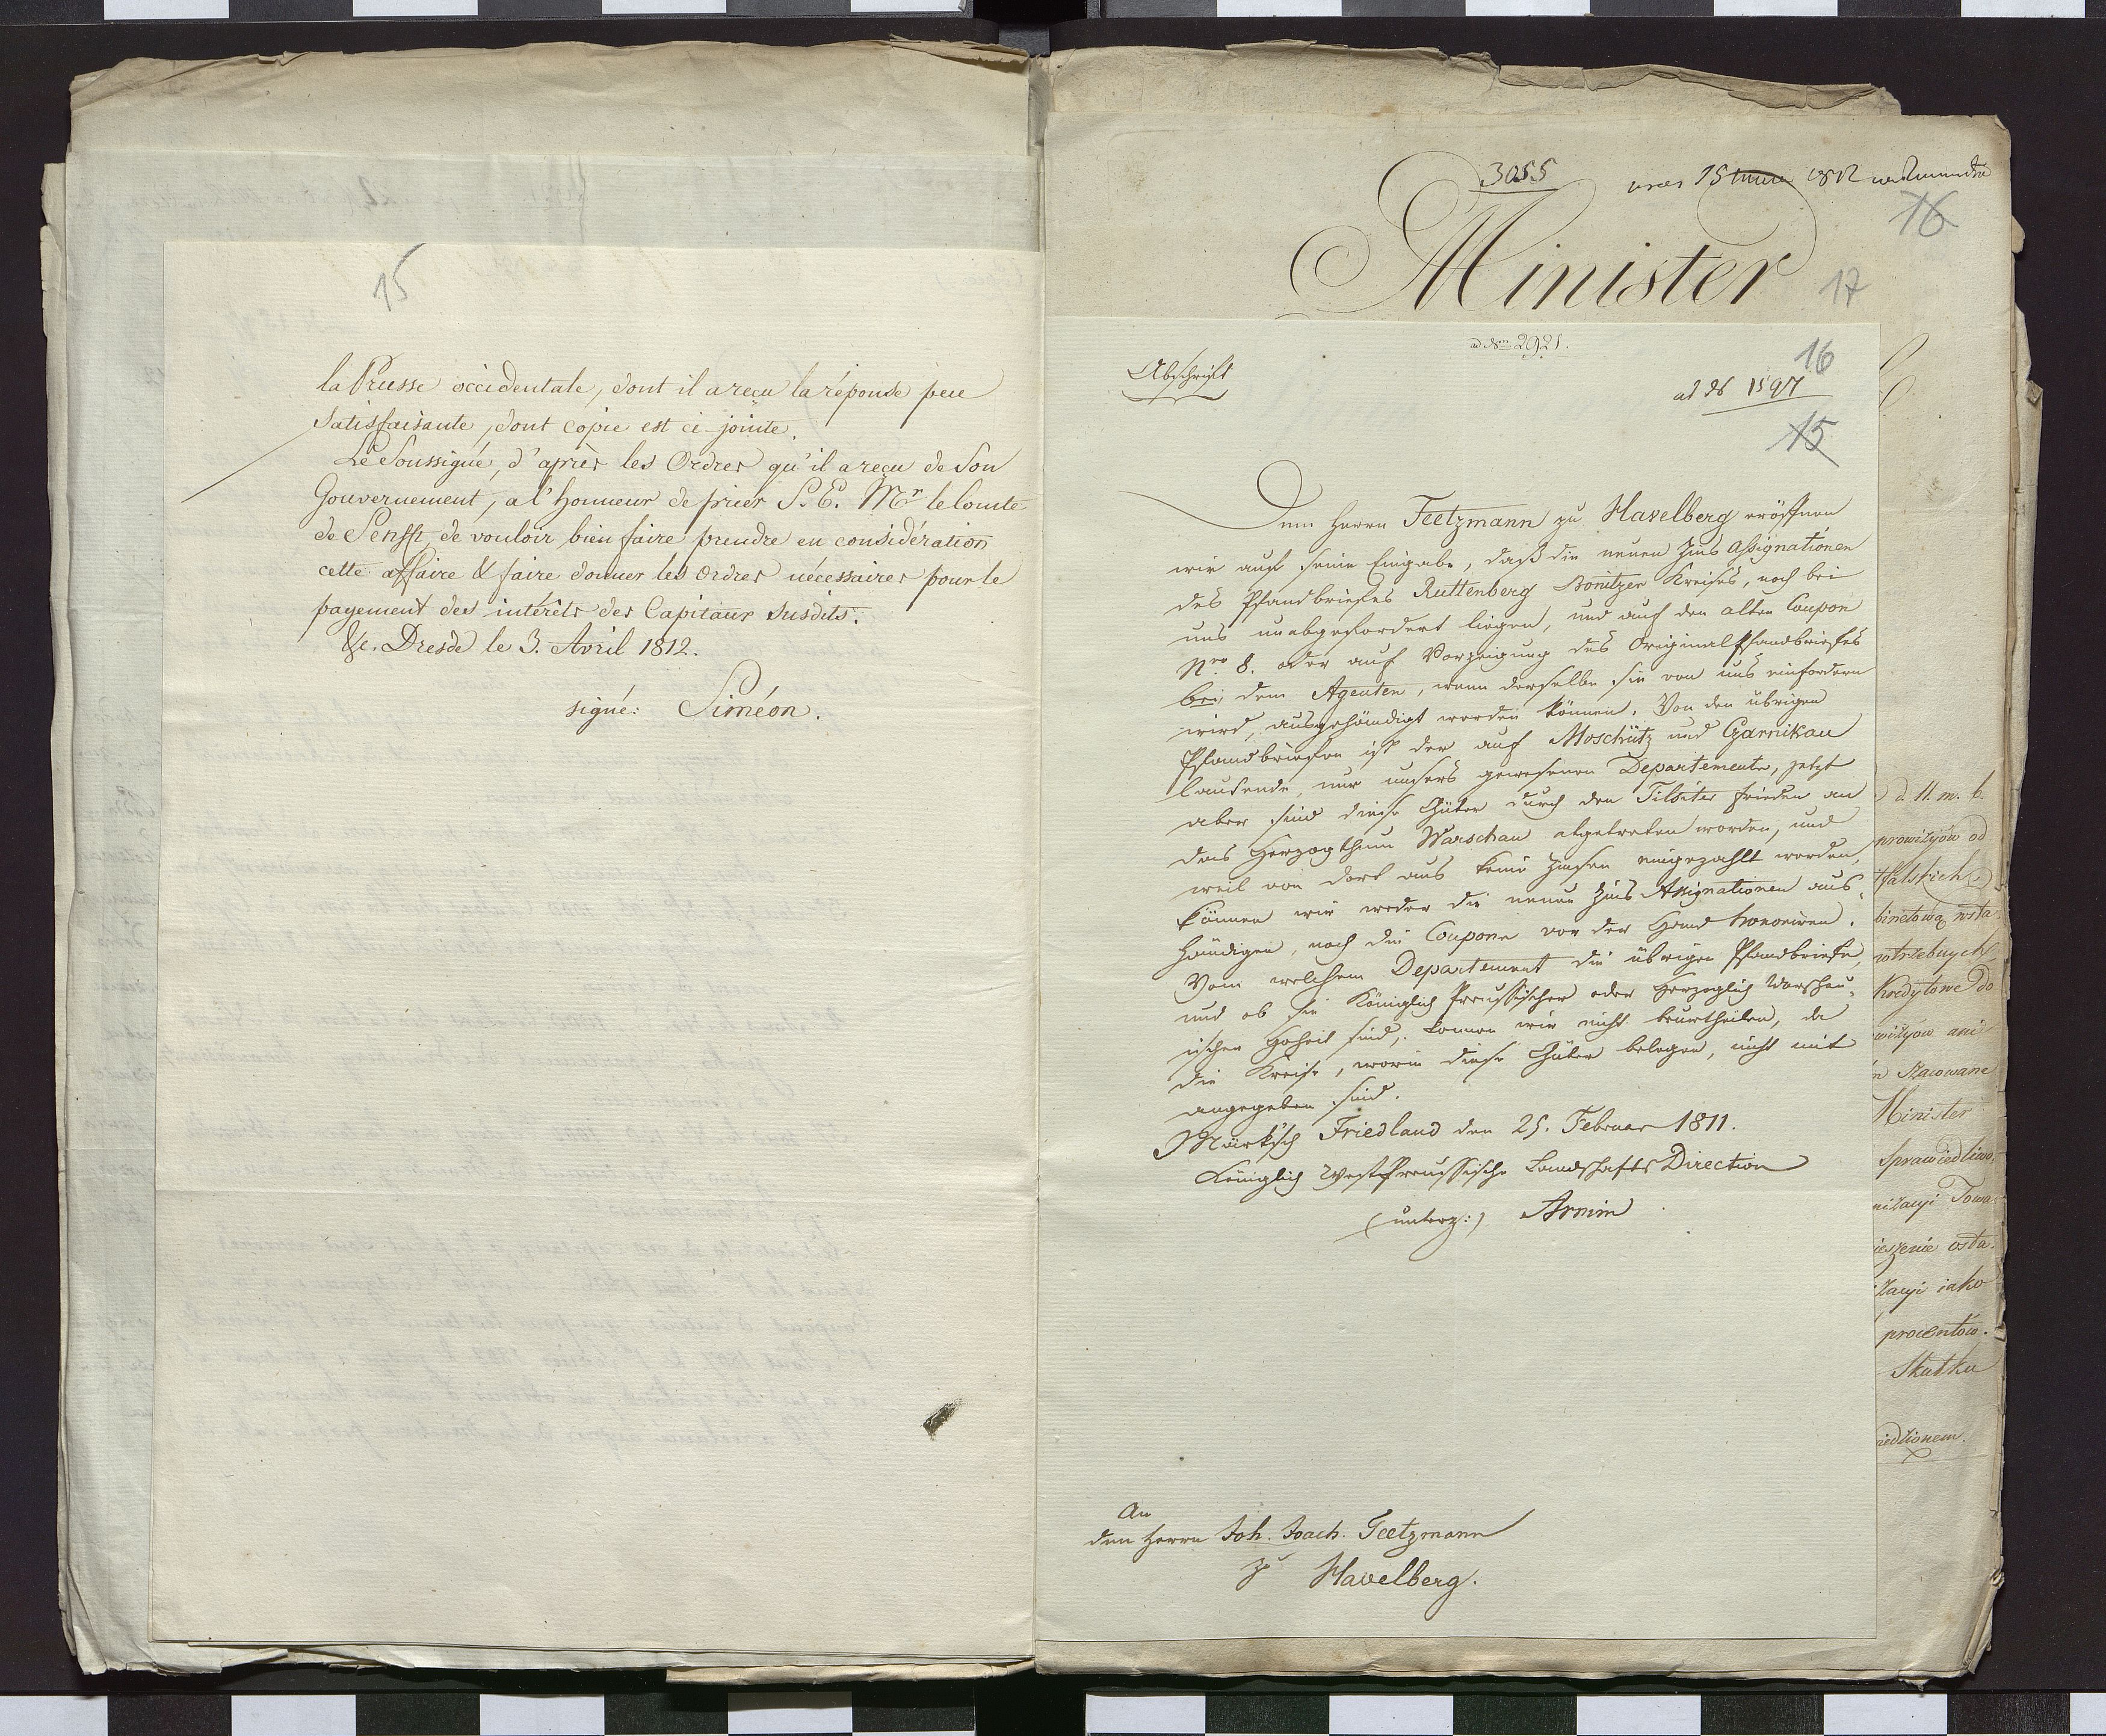 15
la Prusse occidentale, dont il a reçu la réponse peu
satisfaisante, dont copie est ci-jointe.
Le Soussigné, d'après les Ordres qu'il a reçu de Son
Gouvernement, a l'honneur de prier S. E. Mr le Comte
de Senfft, de vouloir bien faire prendre en considération
cette affaire & faire donner les ordres nécessaires pour le
payement des intérêts des Capitaux susdits.
&c. Dresde le 3. Avril 1812.
signé: Siméon.
3055
15 1812
16
Minister
17
ad Num 2921.
Abschrift
16
ad N 1597
15
Dem Herrn Teetzmann zu Havelberg eröffnen
wir auf seine Eingabe, daß die neuen Zins Assignationen
des Pfandbriefes Ruttenberg Bonitzer Kreises, noch bei
uns unabgefordert liegen, und auf den alten Coupon
Nro 8. oder auf Vorzeigung des Originalpfandbriefes
bei dem Agenten, wenn derselbe sie von uns einfordern
wird, ausgehändigt werden können. Von den übrigen
Pfandbriefen ist der auf Moschütz und Czarnikau
laufende, nur unsers gewesenen Departements, jetzt
aber sind diese Güter durch den Tilsiter Frieden an
das Herzogthum Warschau abgetreten worden, und
weil von dort aus keine Zinsen eingezahlt werden,
können wir weder die neuen Zins Assignationen aus-
händigen, noch die Coupons vor der Hand honoriren.
Vom welchem Departement die übrigen Pfandbriefe,
und ob sie Königlich Preussischer oder Herzoglich Warschau-
ischer Hoheit sind, können wir nicht beurtheilen, da
die Kreise, worin diese Güter belegen, nicht mit
angegeben sind.
Märkisch Friedland den 25. Februar 1811.
Königlich WestPreussische Landschafts Direction
(unterz:) Arnim
An
den Herrn Joh. Joach. Teetzmann
zu Havelberg.
d. 11. m. b.
prowizyów od
tfalskich
binetową wsta
wtrzebnych
Kredytowe do
wizyow ani
Szacowane
Minister
Sprawiedliwo
nizacyi Towa
ieszenie osta
zacyi iako
procentow.
Skutku